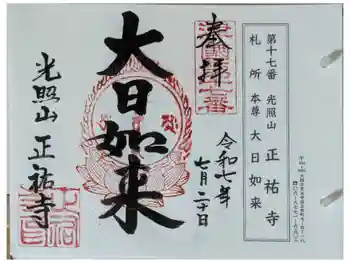 第十七番 光照山 正祐寺
札所 本尊 大日如来
奉拝
令和七年
七月二十日
大日如来
光照山 正祐寺